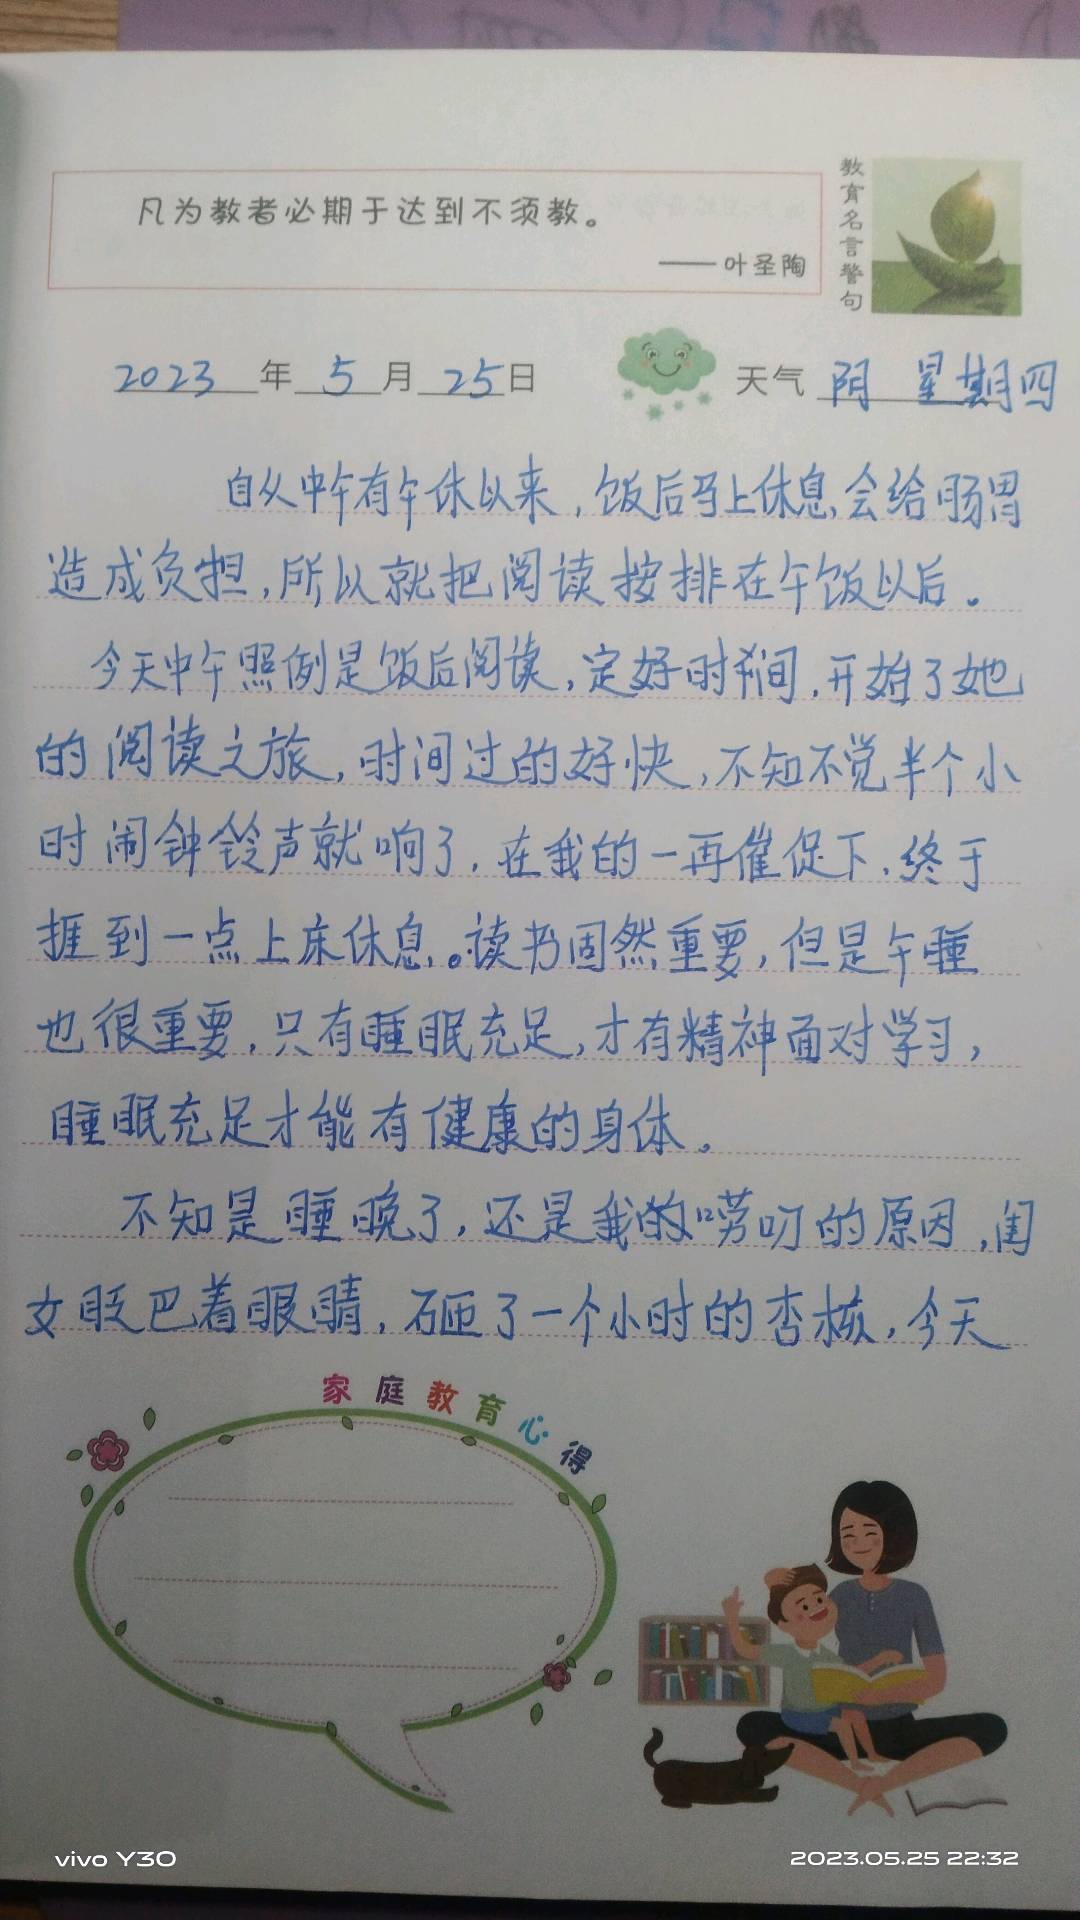 凡为教者必期于达到不须教。
——叶圣陶
教育名言警句
2023年5月25日 天气 阴 星期四
自从中午有午休以来，饭后马上休息会给肠胃
造成负担，所以就把阅读按排在午饭以后。
今天中午照例是饭后阅读，定好时间，开始了她
的阅读之旅，时间过的好快，不知不觉半个小
时闹钟铃声就响了，在我的一再催促下，终于
捱到一点上床休息。读书固然重要，但是午睡
也很重要，只有睡眠充足，才有精神面对学习，
睡眠充足才能有健康的身体。
不知是睡晚了，还是我的唠叨的原因，闺
女眨巴着眼睛，砸了一个小时的杏核，今天
家庭教育心得
vivo Y30
2023.05.25 22:32